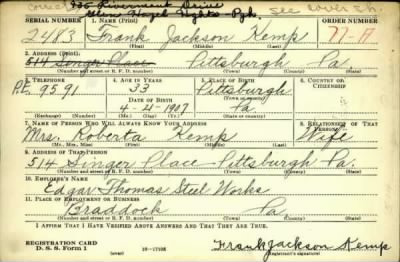 935 Rivermont Drive
Glen Hazel Hights - Pgh. See cover sh.
SERIAL NUMBER 1. NAME (Print) ORDER NUMBER
2483 Frank Jackson Kemp
(First) (Middle) (Last)
2. ADDRESS (Print)
514 Singer Place Pittsburgh Pa.
(Number and street or R. F. D. number) (Town) (County) (State)
3. TELEPHONE 4. AGE IN YEARS 5. PLACE OF BIRTH 6. COUNTRY OF CITIZENSHIP
P.E. 9591 33 Pittsburgh
DATE OF BIRTH (Town or county)
4-4-1907 Pa
(Mo.) (Day) (Yr.) (State or country)
7. NAME OF PERSON WHO WILL ALWAYS KNOW YOUR ADDRESS 8. RELATIONSHIP OF THAT PERSON
Mrs. Roberta Kemp Wife
(Mr., Mrs., Miss) (First) (Middle) (Last)
9. ADDRESS OF THAT PERSON
514 Singer Place Pittsburgh Pa.
(Number and street or R. F. D. number) (Town) (County) (State)
10. EMPLOYER'S NAME
Edgar Thomas Steel Works
11. PLACE OF EMPLOYMENT OR BUSINESS
Braddock Pa.
(Number and street or R. F. D. number) (Town) (County) (State)
I AFFIRM THAT I HAVE VERIFIED ABOVE ANSWERS AND THAT THEY ARE TRUE.
REGISTRATION CARD
D. S. S. Form 1 (over) 16-17105 Frank Jackson Kemp
(Registrant's signature)